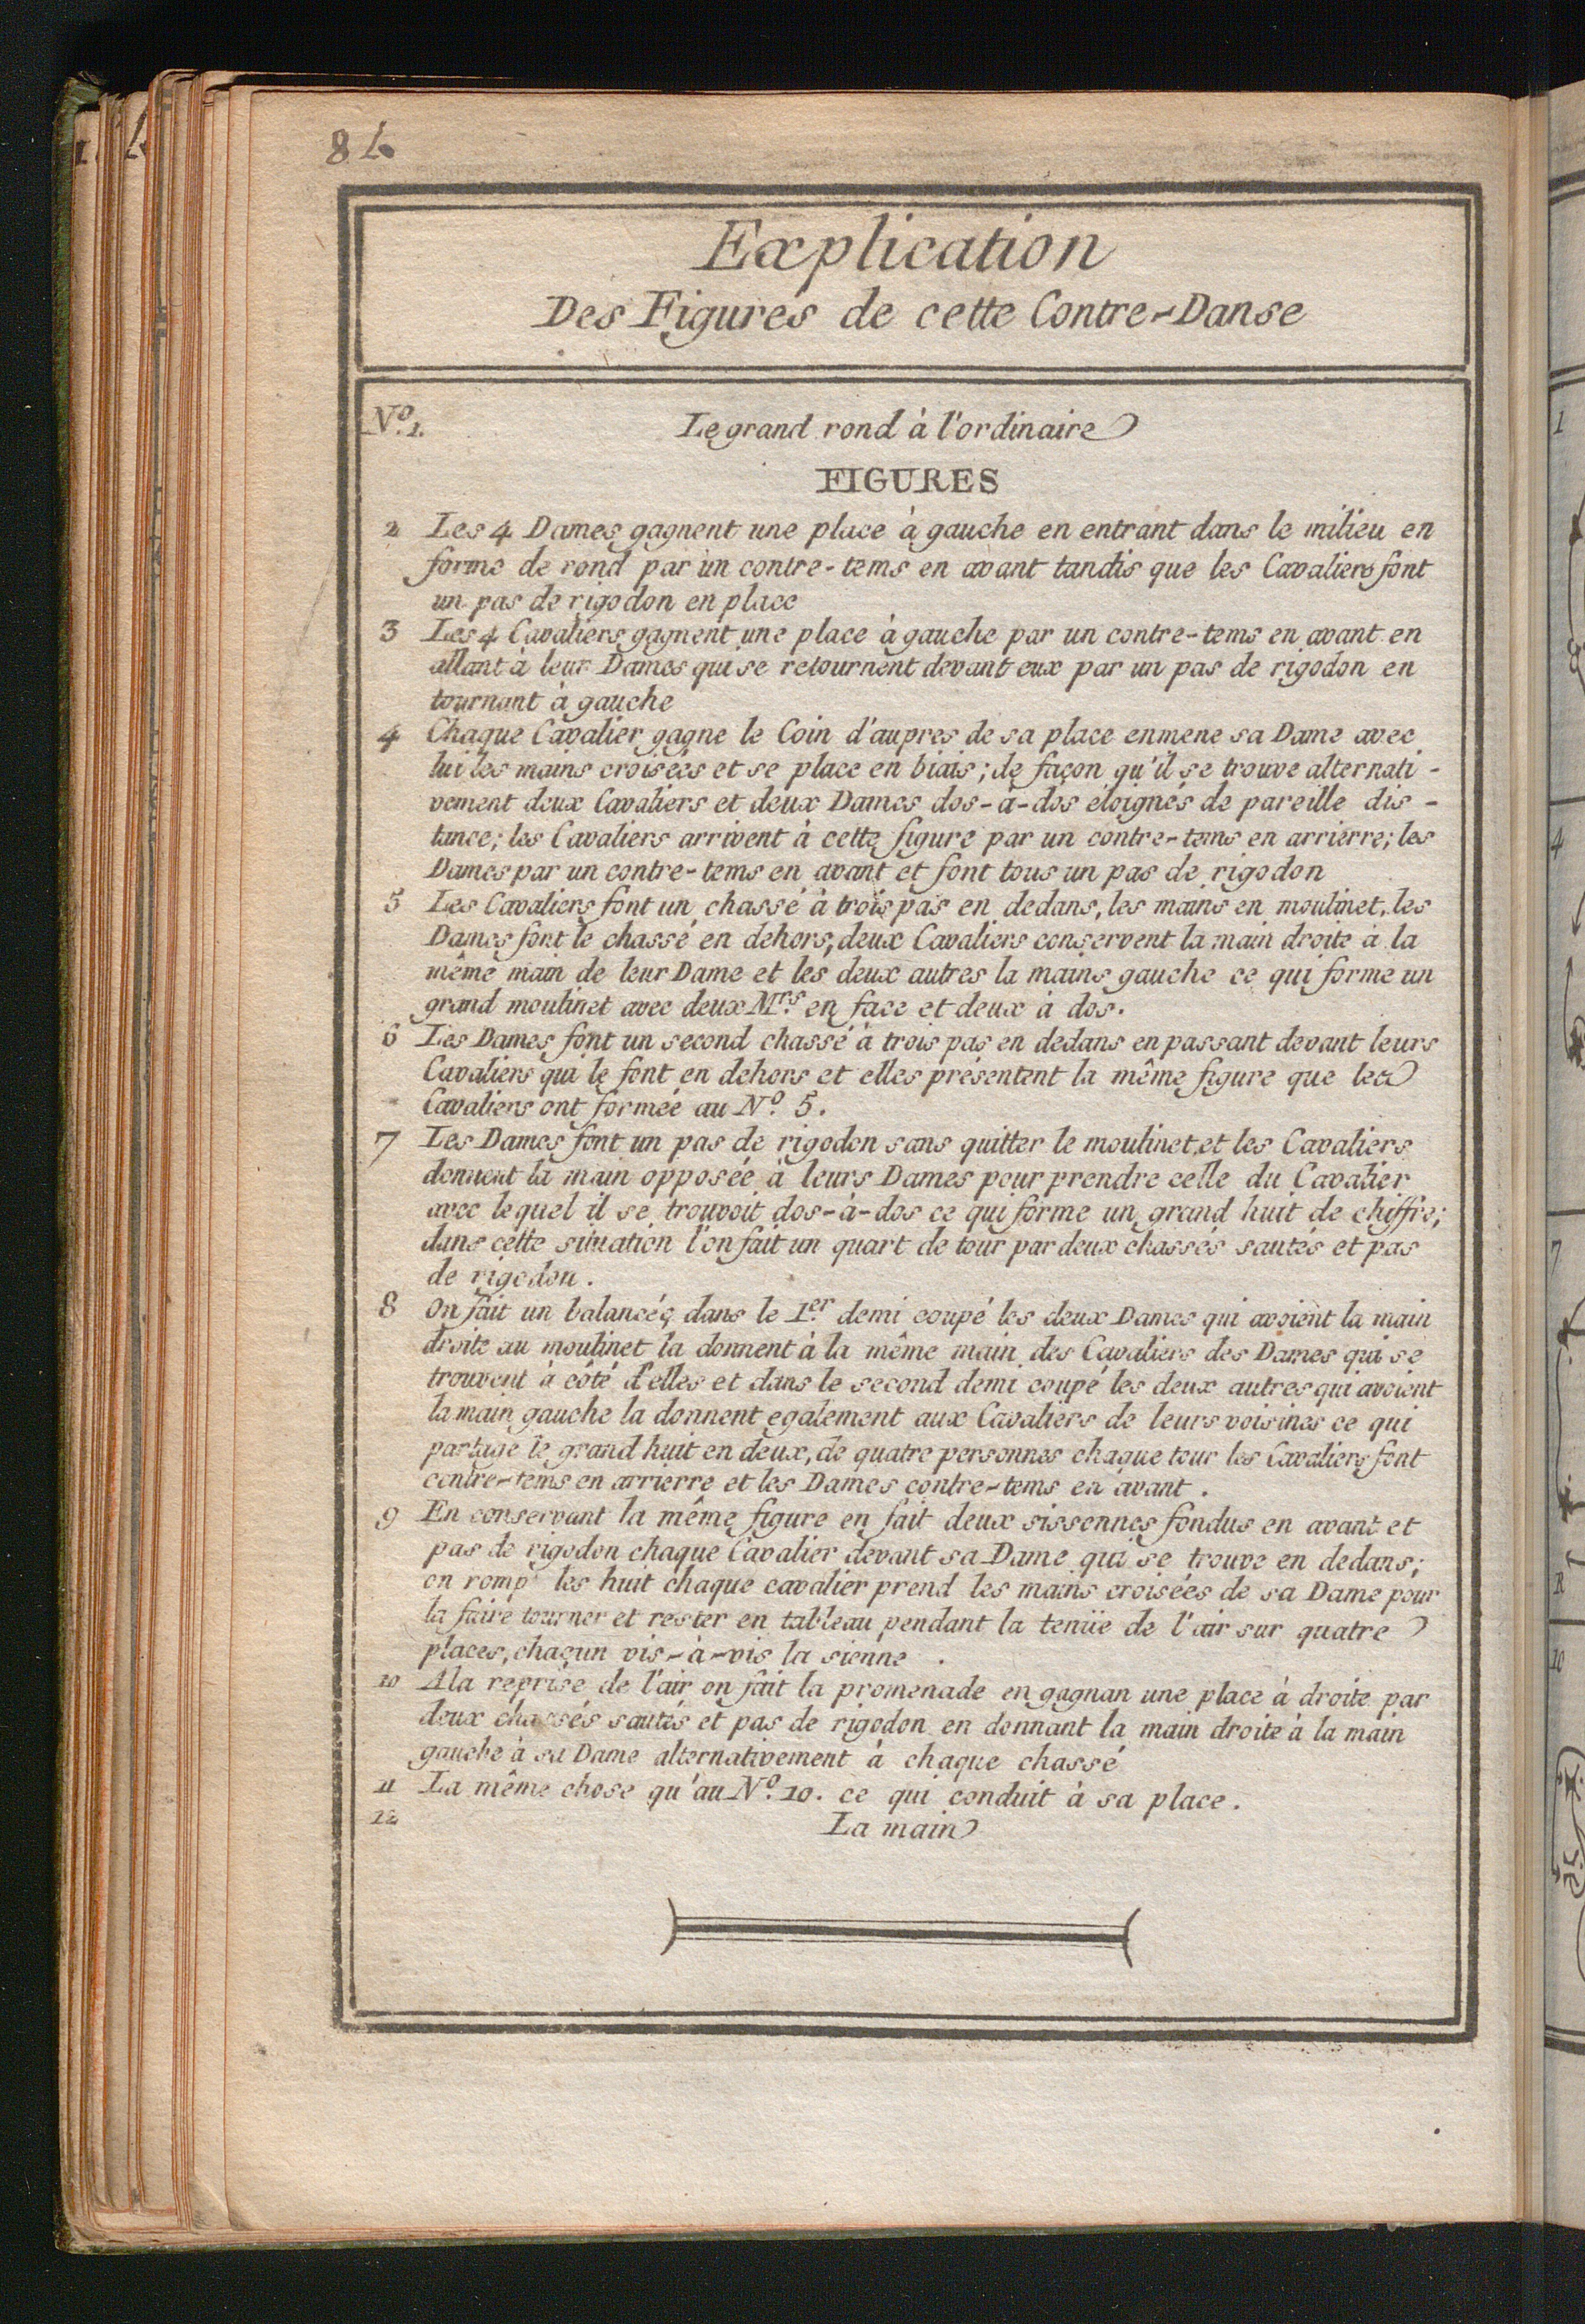 Explication
Des Figures de cette Contre-Danse
Nº. 1. Le grand rond à l'ordinaire
FIGURES
2 Les 4 Dames gagnent une place à gauche en entrant dans le milieu en
forme de rond par un contre-tems en avant tandis que les Cavaliers font
un pas de rigodon en place
3 Les 4 Cavaliers gagnent une place à gauche par un contre-tems en avant en
allant à leur Dames qui se retournent devant eux par un pas de rigodon en
tournant à gauche
4 Chaque Cavalier gagne le Coin d'aupres de sa place enmene sa Dame avec
lui les mains croisées et se place en biais; de façon qu'il se trouve alternati-
vement deux Cavaliers et deux Dames dos-à-dos éloignés de pareille dis-
tance; les Cavaliers arrivent à cette figure par un contre-tems en arrierre; les
Dames par un contre-tems en avant et font tous un pas de rigodon
5 Les Cavaliers font un chassé à trois pas en dedans, les mains en moulinet, les
Dames font le chassé en dehors, deux Cavaliers conservent la main droite à la
même main de leur Dame et les deux autres la mains gauche ce qui forme un
grand moulinet avec deux Mrs. en face et deux à dos.
6 Les Dames font un second chassé à trois pas en dedans en passant devant leurs
Cavaliers qui le font en dehors et elles présentent la même figure que les
Cavaliers ont formeé au Nº. 5.
7 Les Dames font un pas de rigodon sans quitter le moulinet, et les Cavaliers
donnent la main opposée à leurs Dames pour prendre celle du Cavalier
avec lequel il se trouvoit dos-à-dos ce qui forme un grand huit de chiffre;
dans cette situation l'on fait un quart de tour par deux chassés sautés et pas
de rigodon.
8 On fait un balancéç dans le 1er. demi coupé les deux Dames qui avoient la main
droite au moulinet la donnent à la même main des Cavaliers des Dames qui se
trouvent à côté d'elles et dans le second demi coupé les deux autres qui avoient
la main gauche la donnent egalement aux Cavaliers de leurs voisines ce qui
partage le grand huit en deux, de quatre personnes chaque tour les Cavaliers font
contre-tems en arrierre et les Dames contre-tems en avant.
9 En conservant la même figure en fait deux sissonnes fondus en avant et
pas de rigodon chaque Cavalier devant sa Dame qui se trouve en dedans;
on romp les huit chaque cavalier prend les mains croisées de sa Dame pour
la faire tourner et rester en tableau pendant la tenüe de l'air sur quatre
places, chaçun vis-à-vis la sienne.
10 A la reprise de l'air on fait la promenade en gagnan une place à droite par
deux chassés sautés et pas de rigodon en donnant la main droite à la main
gauche à sa Dame alternativement à chaque chassé
11 La même chose qu'au Nº. 10. ce qui conduit à sa place.
12 La main